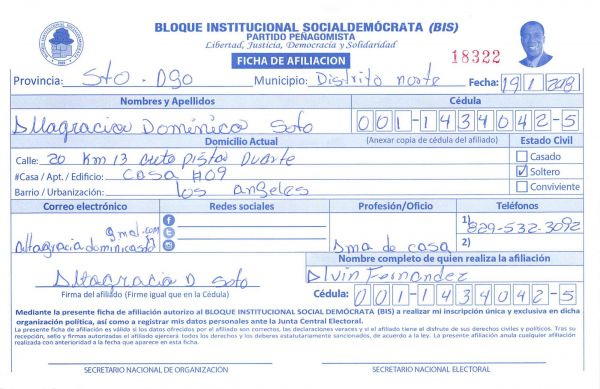 BLOQUE INSTITUCIONAL SOCIALDEMÓCRATA (BIS)
PARTIDO PEÑAGOMISTA
Libertad, Justicia, Democracia y Solidaridad
FICHA DE AFILIACION
18322
Provincia: Sto. Dgo Municipio: Distrito norte Fecha: 19/1/2018
Nombres y Apellidos Cédula
Altagracia Dominica Soto 001-1434042-5
Domicilio Actual (Anexar copia de cédula del afiliado) Estado Civil
Calle: 20 Km 13 Auto Pista Duarte Casado
#Casa / Apt. / Edificio: Casa #09 Soltero
Barrio / Urbanización: los angeles Conviviente
Correo electrónico Redes sociales Profesión/Oficio Teléfonos
gmal.com 1) 829-532-3092
altagraciadominicaso Ama de casa 2)
Nombre completo de quien realiza la afiliación
Altagracia D Soto Alvin Fernandez
Firma del afiliado (Firme igual que en la Cédula) Cédula: 001-1434042-5
Mediante la presente ficha de afiliación autorizo al BLOQUE INSTITUCIONAL SOCIAL DEMÓCRATA (BIS) a realizar mi inscripción única y exclusiva en dicha
organización política, así como a registrar mis datos personales ante la Junta Central Electoral.
La presente ficha de afiliación es válida si los datos ofrecidos por el afiliado son correctos, las declaraciones veraces y si el afiliado tiene el disfrute de sus derechos civiles y políticos. Tras su
recepción, sello y firmas autorizadas el afiliado ejercerá todos los derechos y los deberes estatutariamente sancionados, de acuerdo a la ley. La presente afiliación anula cualquier afiliación
realizada con anterioridad a la fecha que aparece en esta ficha.
SECRETARIO NACIONAL DE ORGANIZACIÓN SECRETARIO NACIONAL ELECTORAL